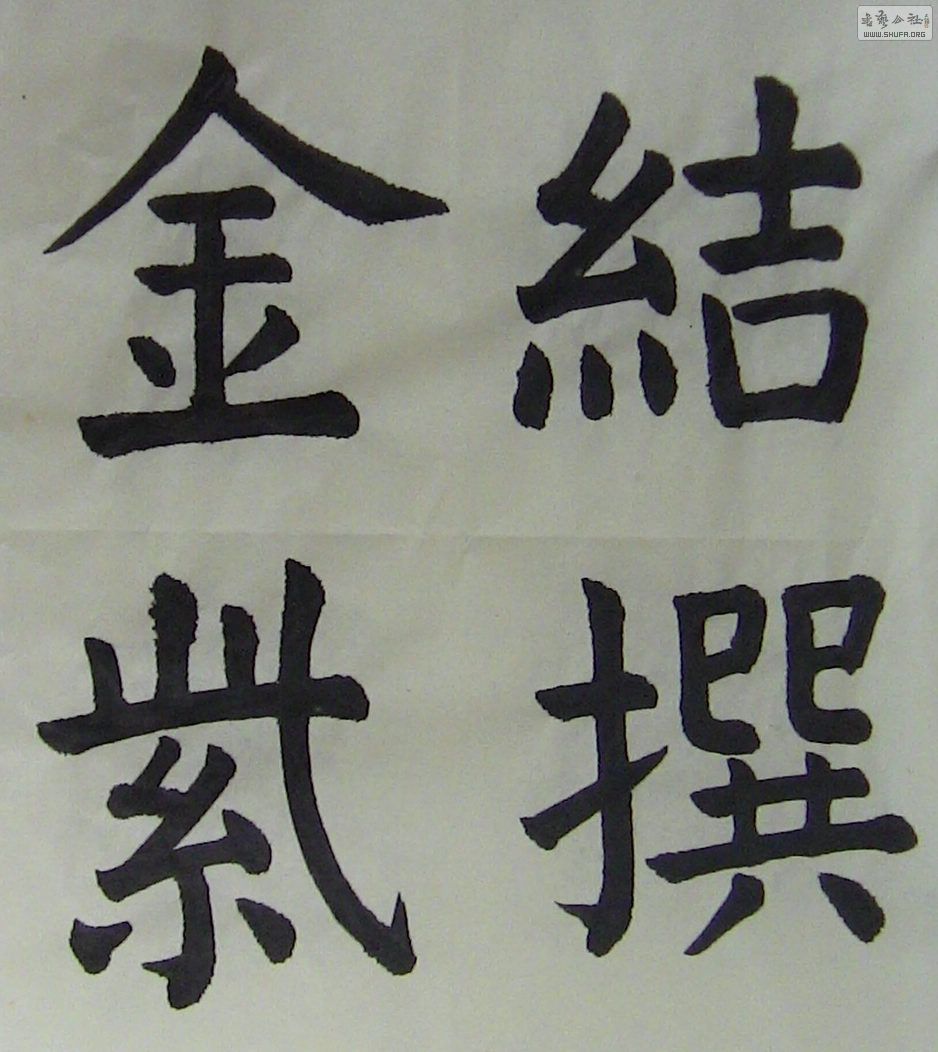 結撰
金紫
書藝公社
WWW.SHUFA.ORG